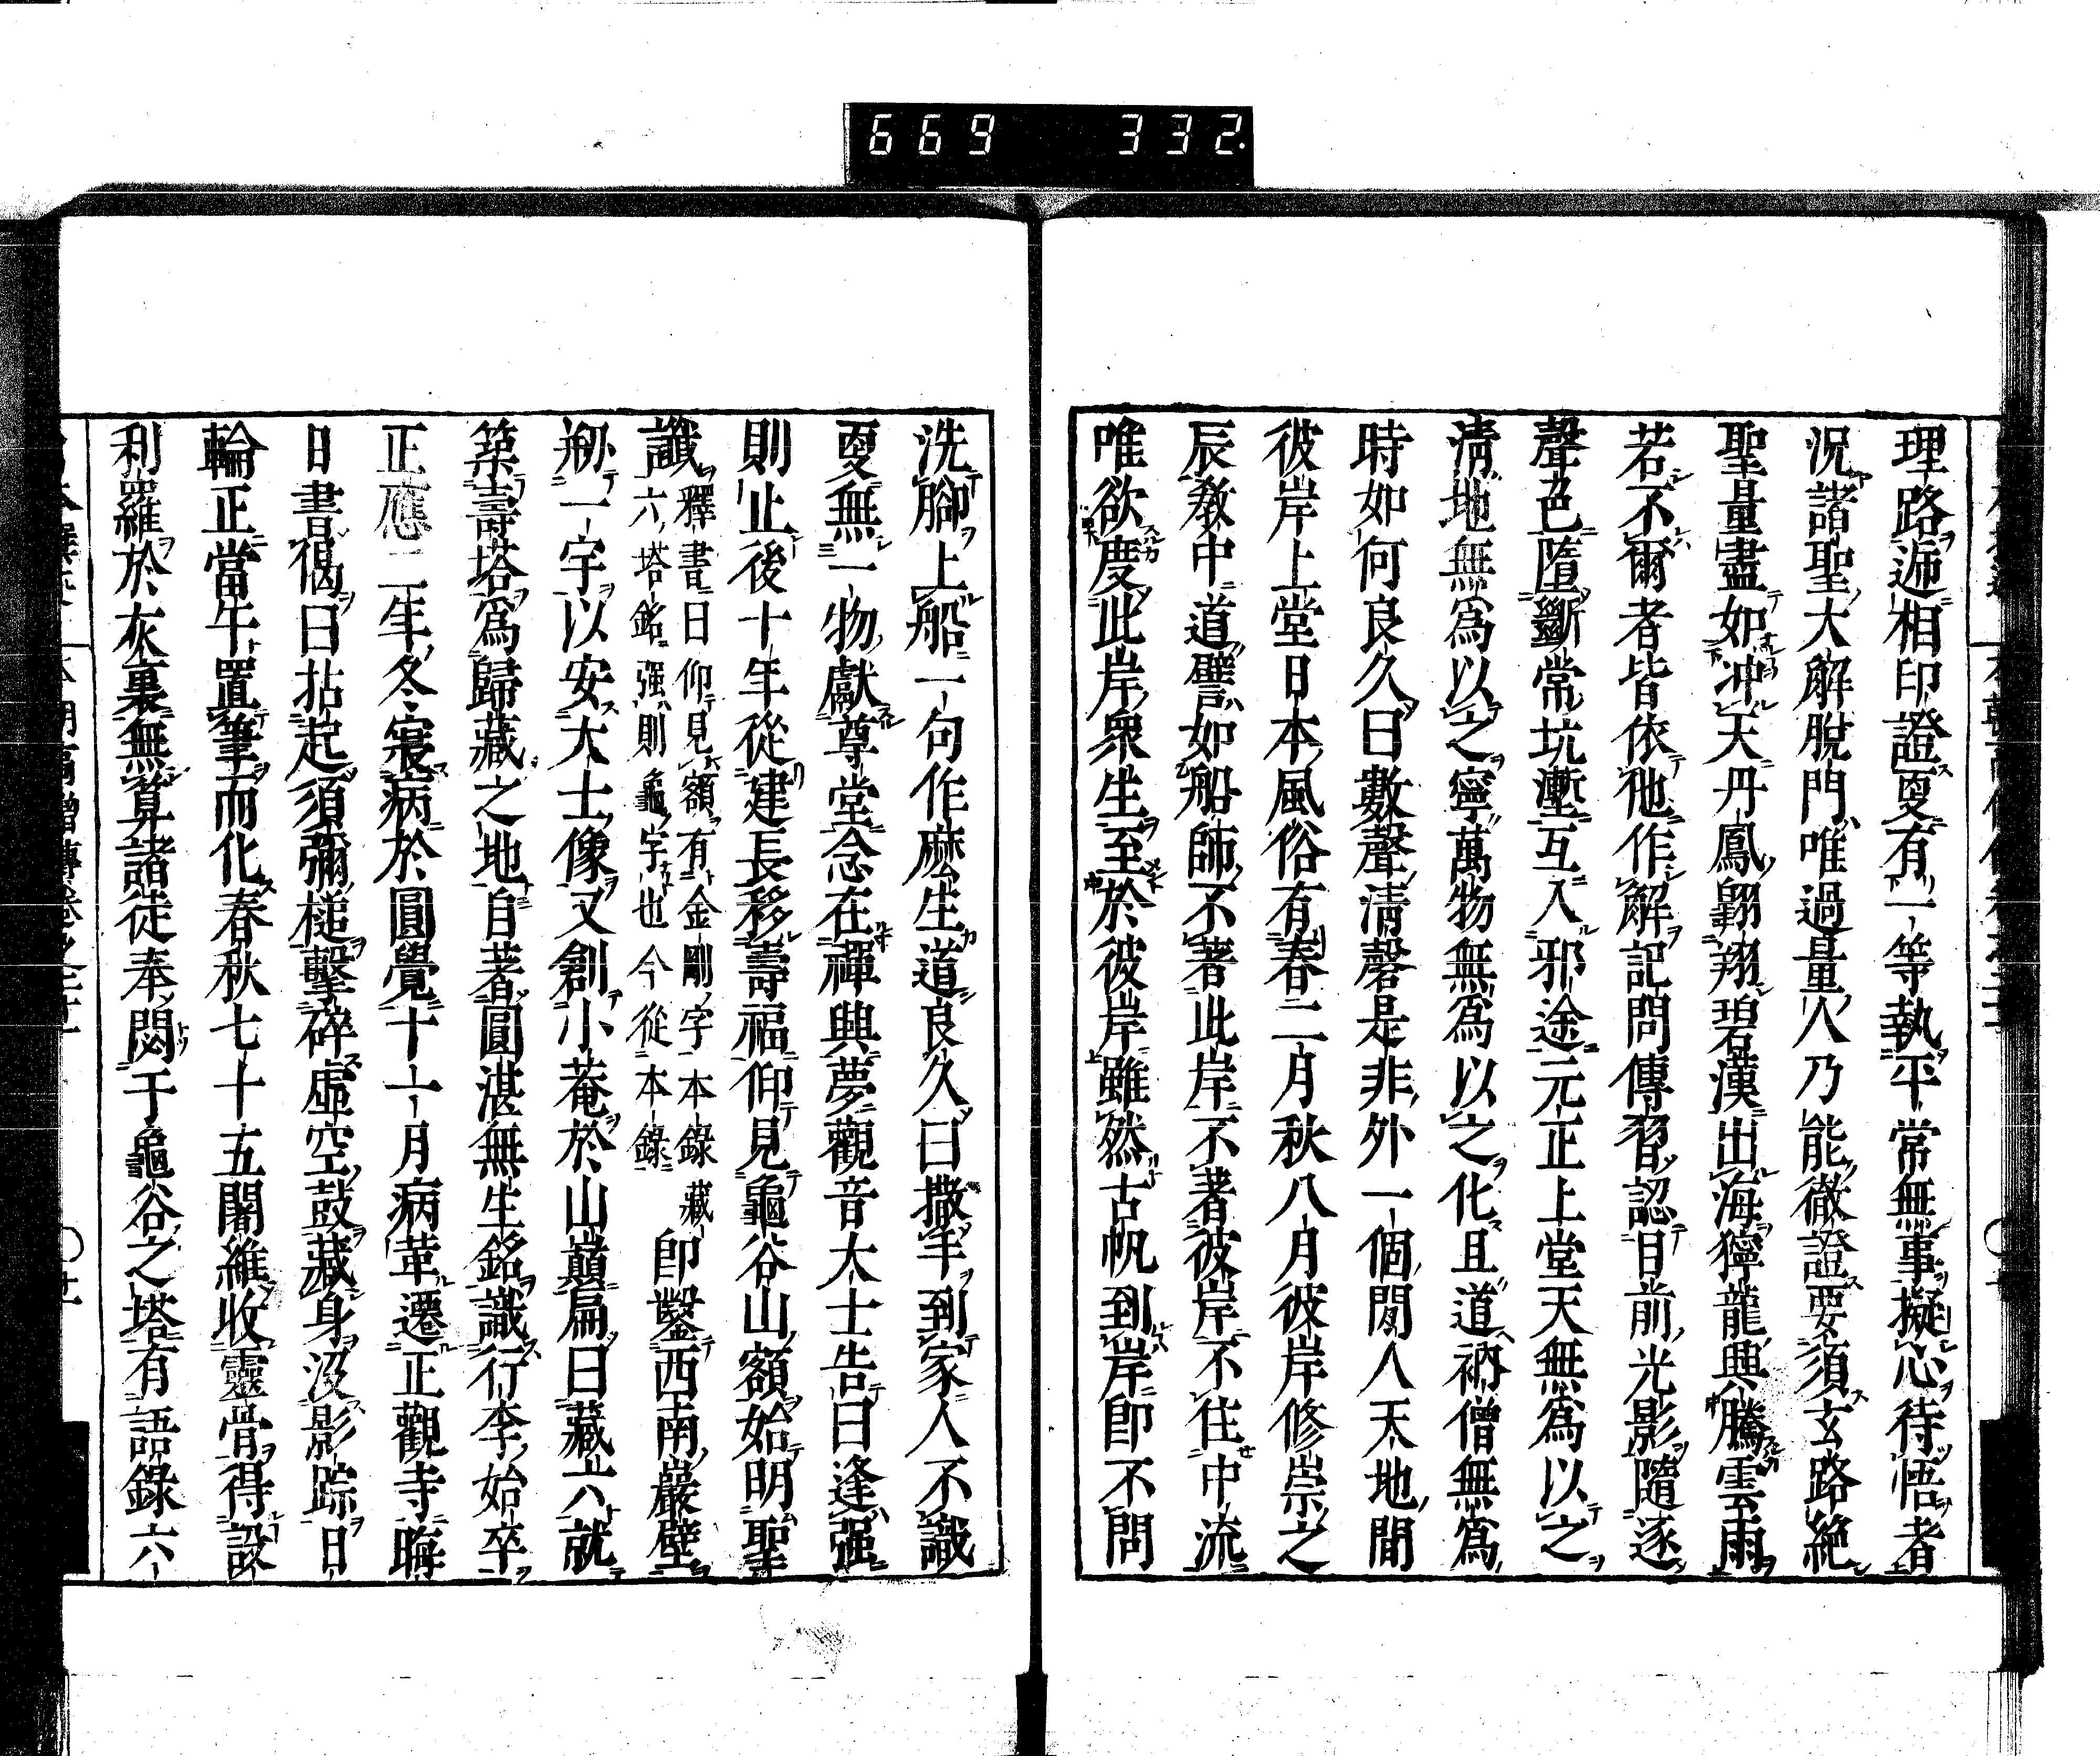 669 332.
理路遞相印證更有一等執平常無事擬心待悟者
況諸聖大解脫門唯過量人乃能徹證要須玄路絕
聖量盡如冲天丹鳳翺翔碧漢出海獰龍興騰雲雨
若不爾者皆依他作解記問傳習認目前光影隨逐
聲色墮斷常坑塹互入邪途元正上堂天無為以之
清地無為以之寧萬物無為以之化且道衲僧無為
時如何良久曰數聲清磬是非外一個閑人天地間
彼岸上堂日本風俗有春二月秋八月彼岸修崇之
辰教中道譬如船師不著此岸不著彼岸不住中流
唯欲度此岸衆生至於彼岸雖然古帆到岸即不問
洗腳上船一句作麽生道良久曰撒手到家人不識
更無一物獻尊堂念在禪興夢觀音大士告曰逢强
則止後十年從建長移壽福仰見龜谷山額始明聖
讖釋書曰仰見額有金剛字本錄藏
六塔銘强則龜字也今從本錄
即鑿西南巖壁
刱一宇以安大士像又創小菴於山巔扁曰藏六就
築壽塔為歸藏之地自著圓湛無生銘識行李始卒
正應二年冬寢病於圓覺十一月病革遷正觀寺晦
日書偈曰拈起須彌槌擊碎虛空鼓藏身沒影踪日
輪正當午置筆而化春秋七十五闍維收靈骨得設
利羅於灰裏無算諸徒奉閟于龜谷之塔有語錄六